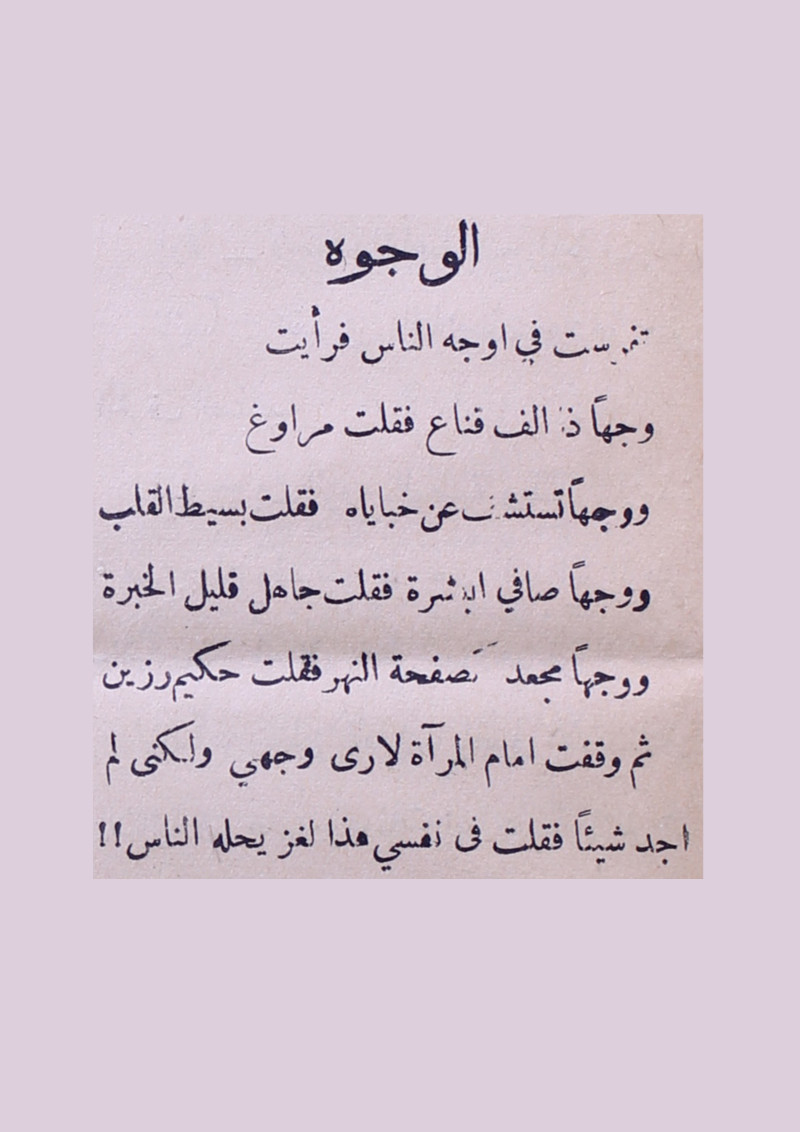 الوجوه
تفرست في اوجه الناس فرأيت
وجهاً ذا الف قناع فقلت مراوغ
ووجهاً تستشف عن خباياه فقلت بسيط القلب
ووجهاً صافي البشرة فقلت جاهل قليل الخبرة
ووجهاً مجعد كصفحة النهر فقلت حكيم رزين
ثم وقفت امام المرآة لارى وجهي ولكنى لم
اجد شيئاً فقلت فى نفسي هذا لغز يحله الناس!!